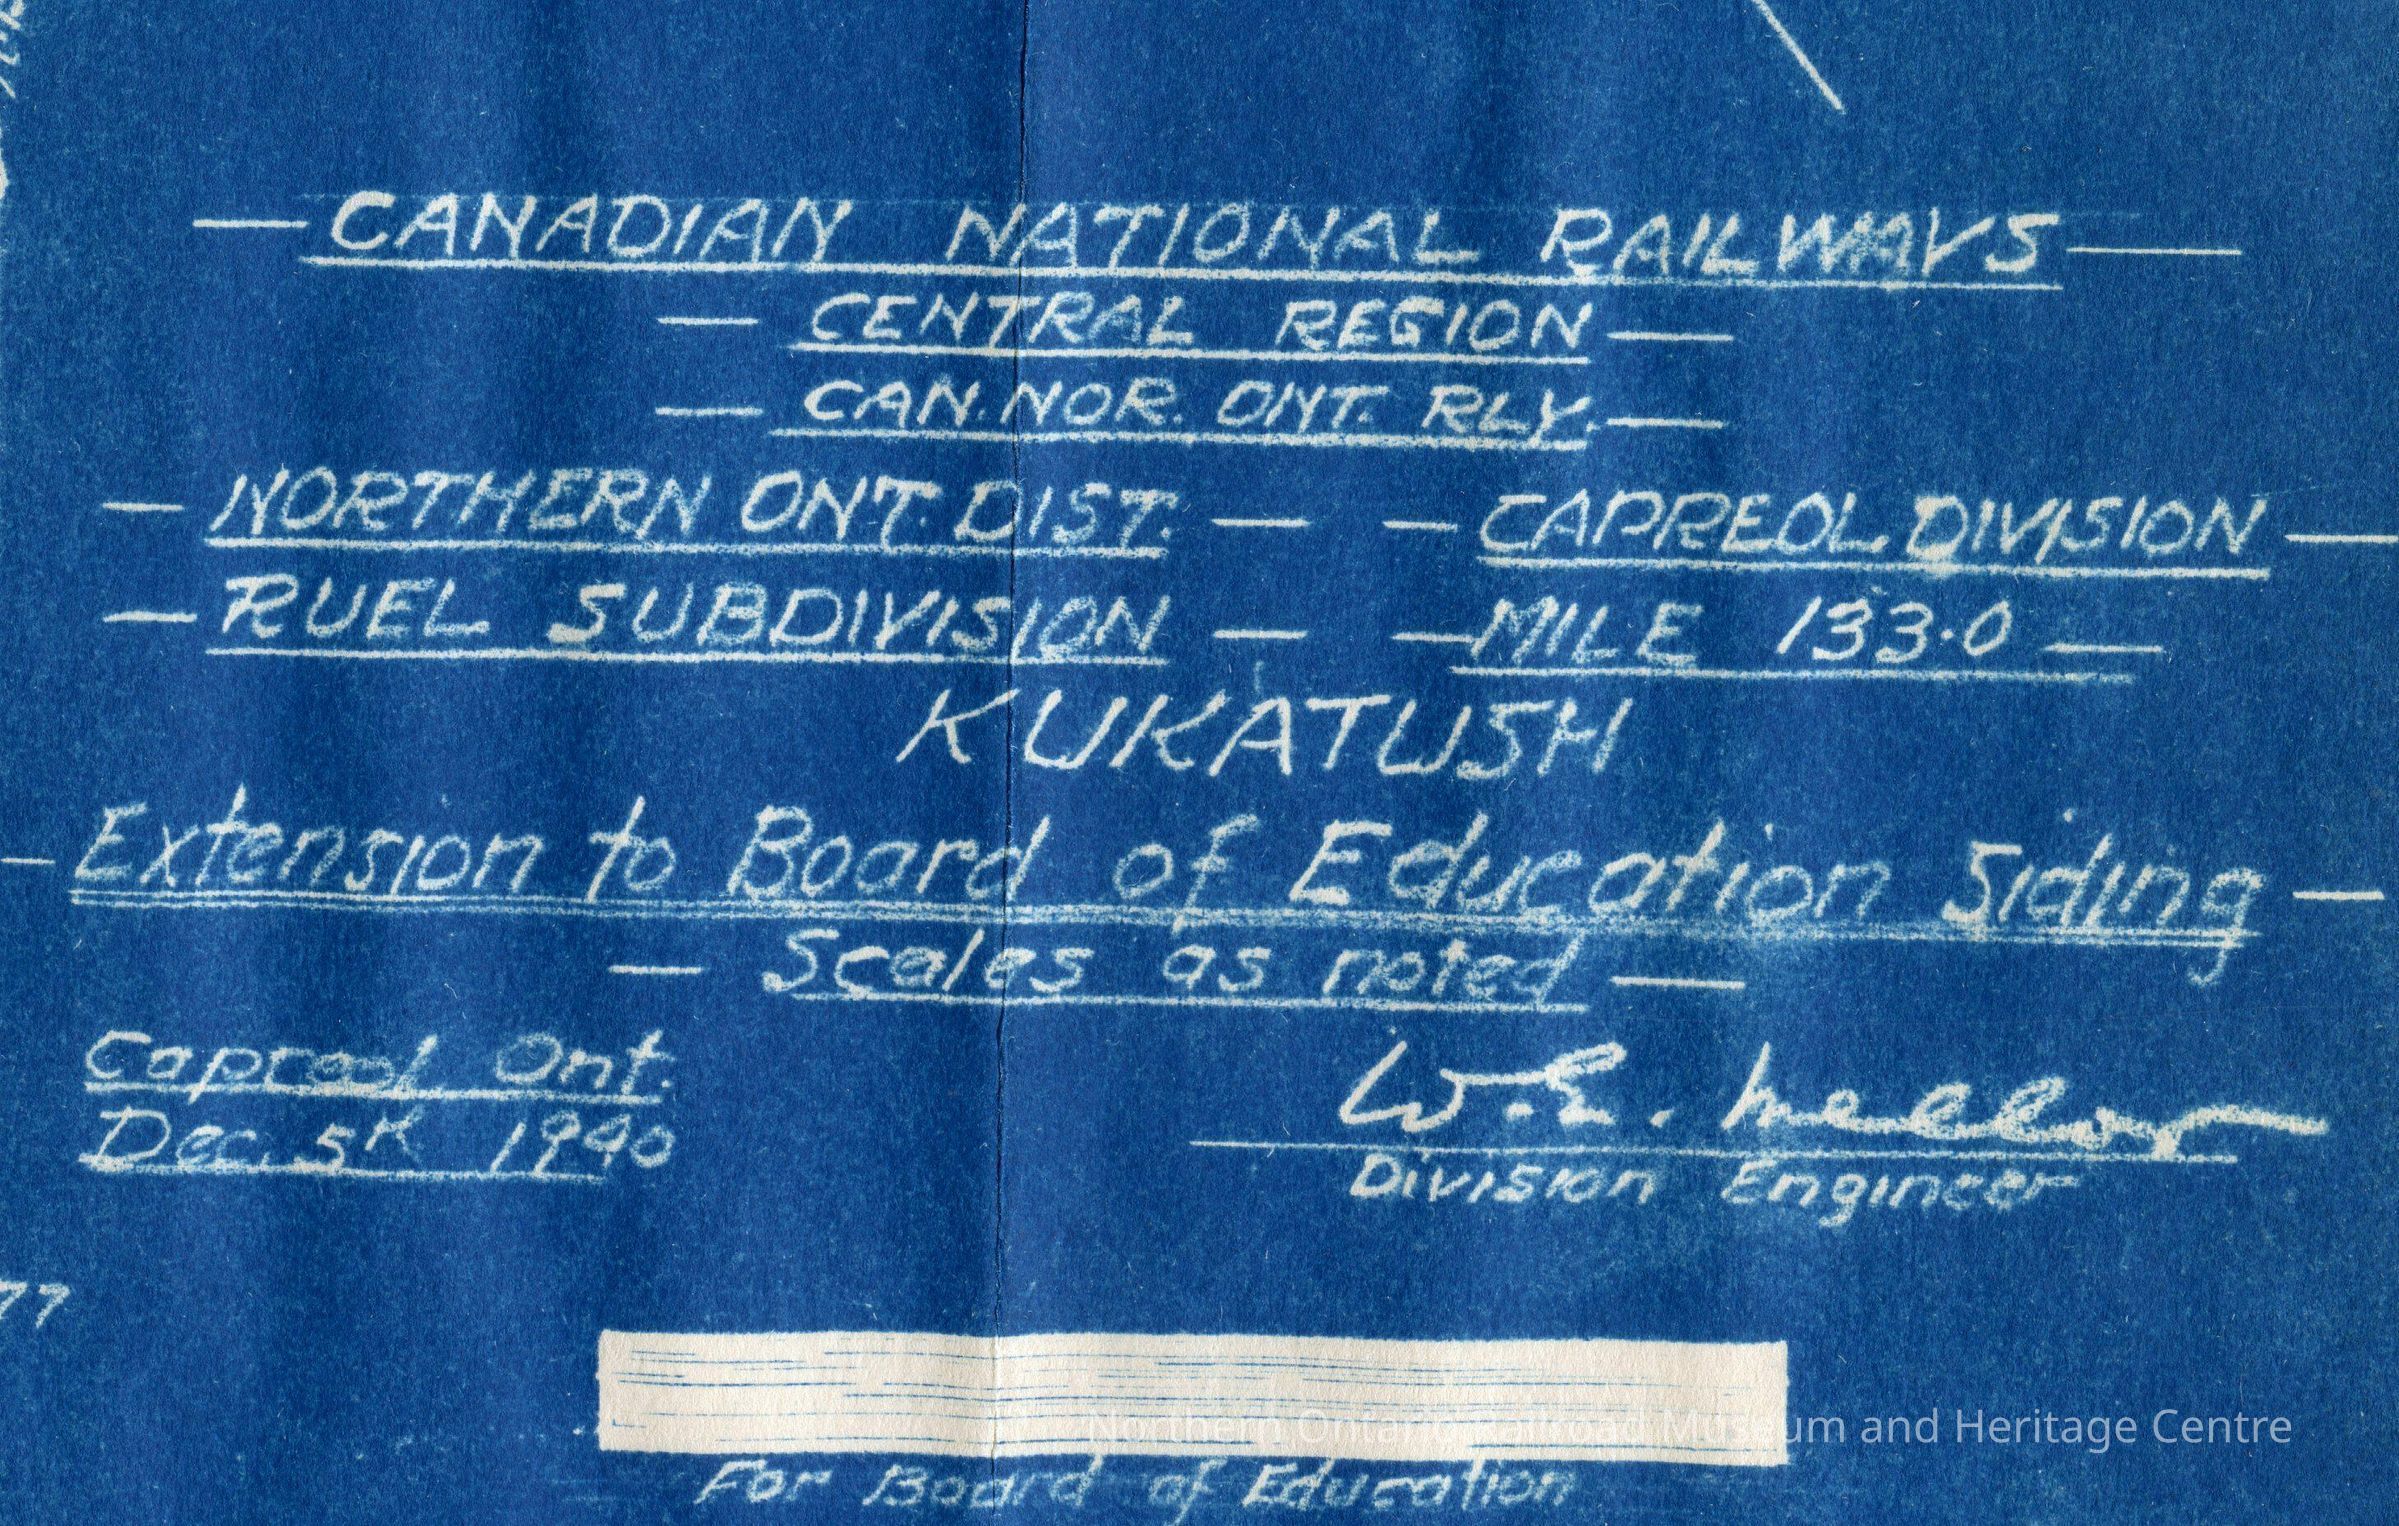 — CANADIAN NATIONAL RAILWAYS —
— CENTRAL REGION —
— CAN. NOR. ONT. RLY. —
— NORTHERN ONT. DIST. — — CAPREOL DIVISION —
— RUEL SUBDIVISION — — MILE 133.0 —
KUKATUSH
— Extension to Board of Education Siding —
— Scales as noted —
Capreol Ont.
Dec. 5th 1940
W.E. Mellor
Division Engineer
77
Northern Ontario Railroad Museum and Heritage Centre
For Board of Education